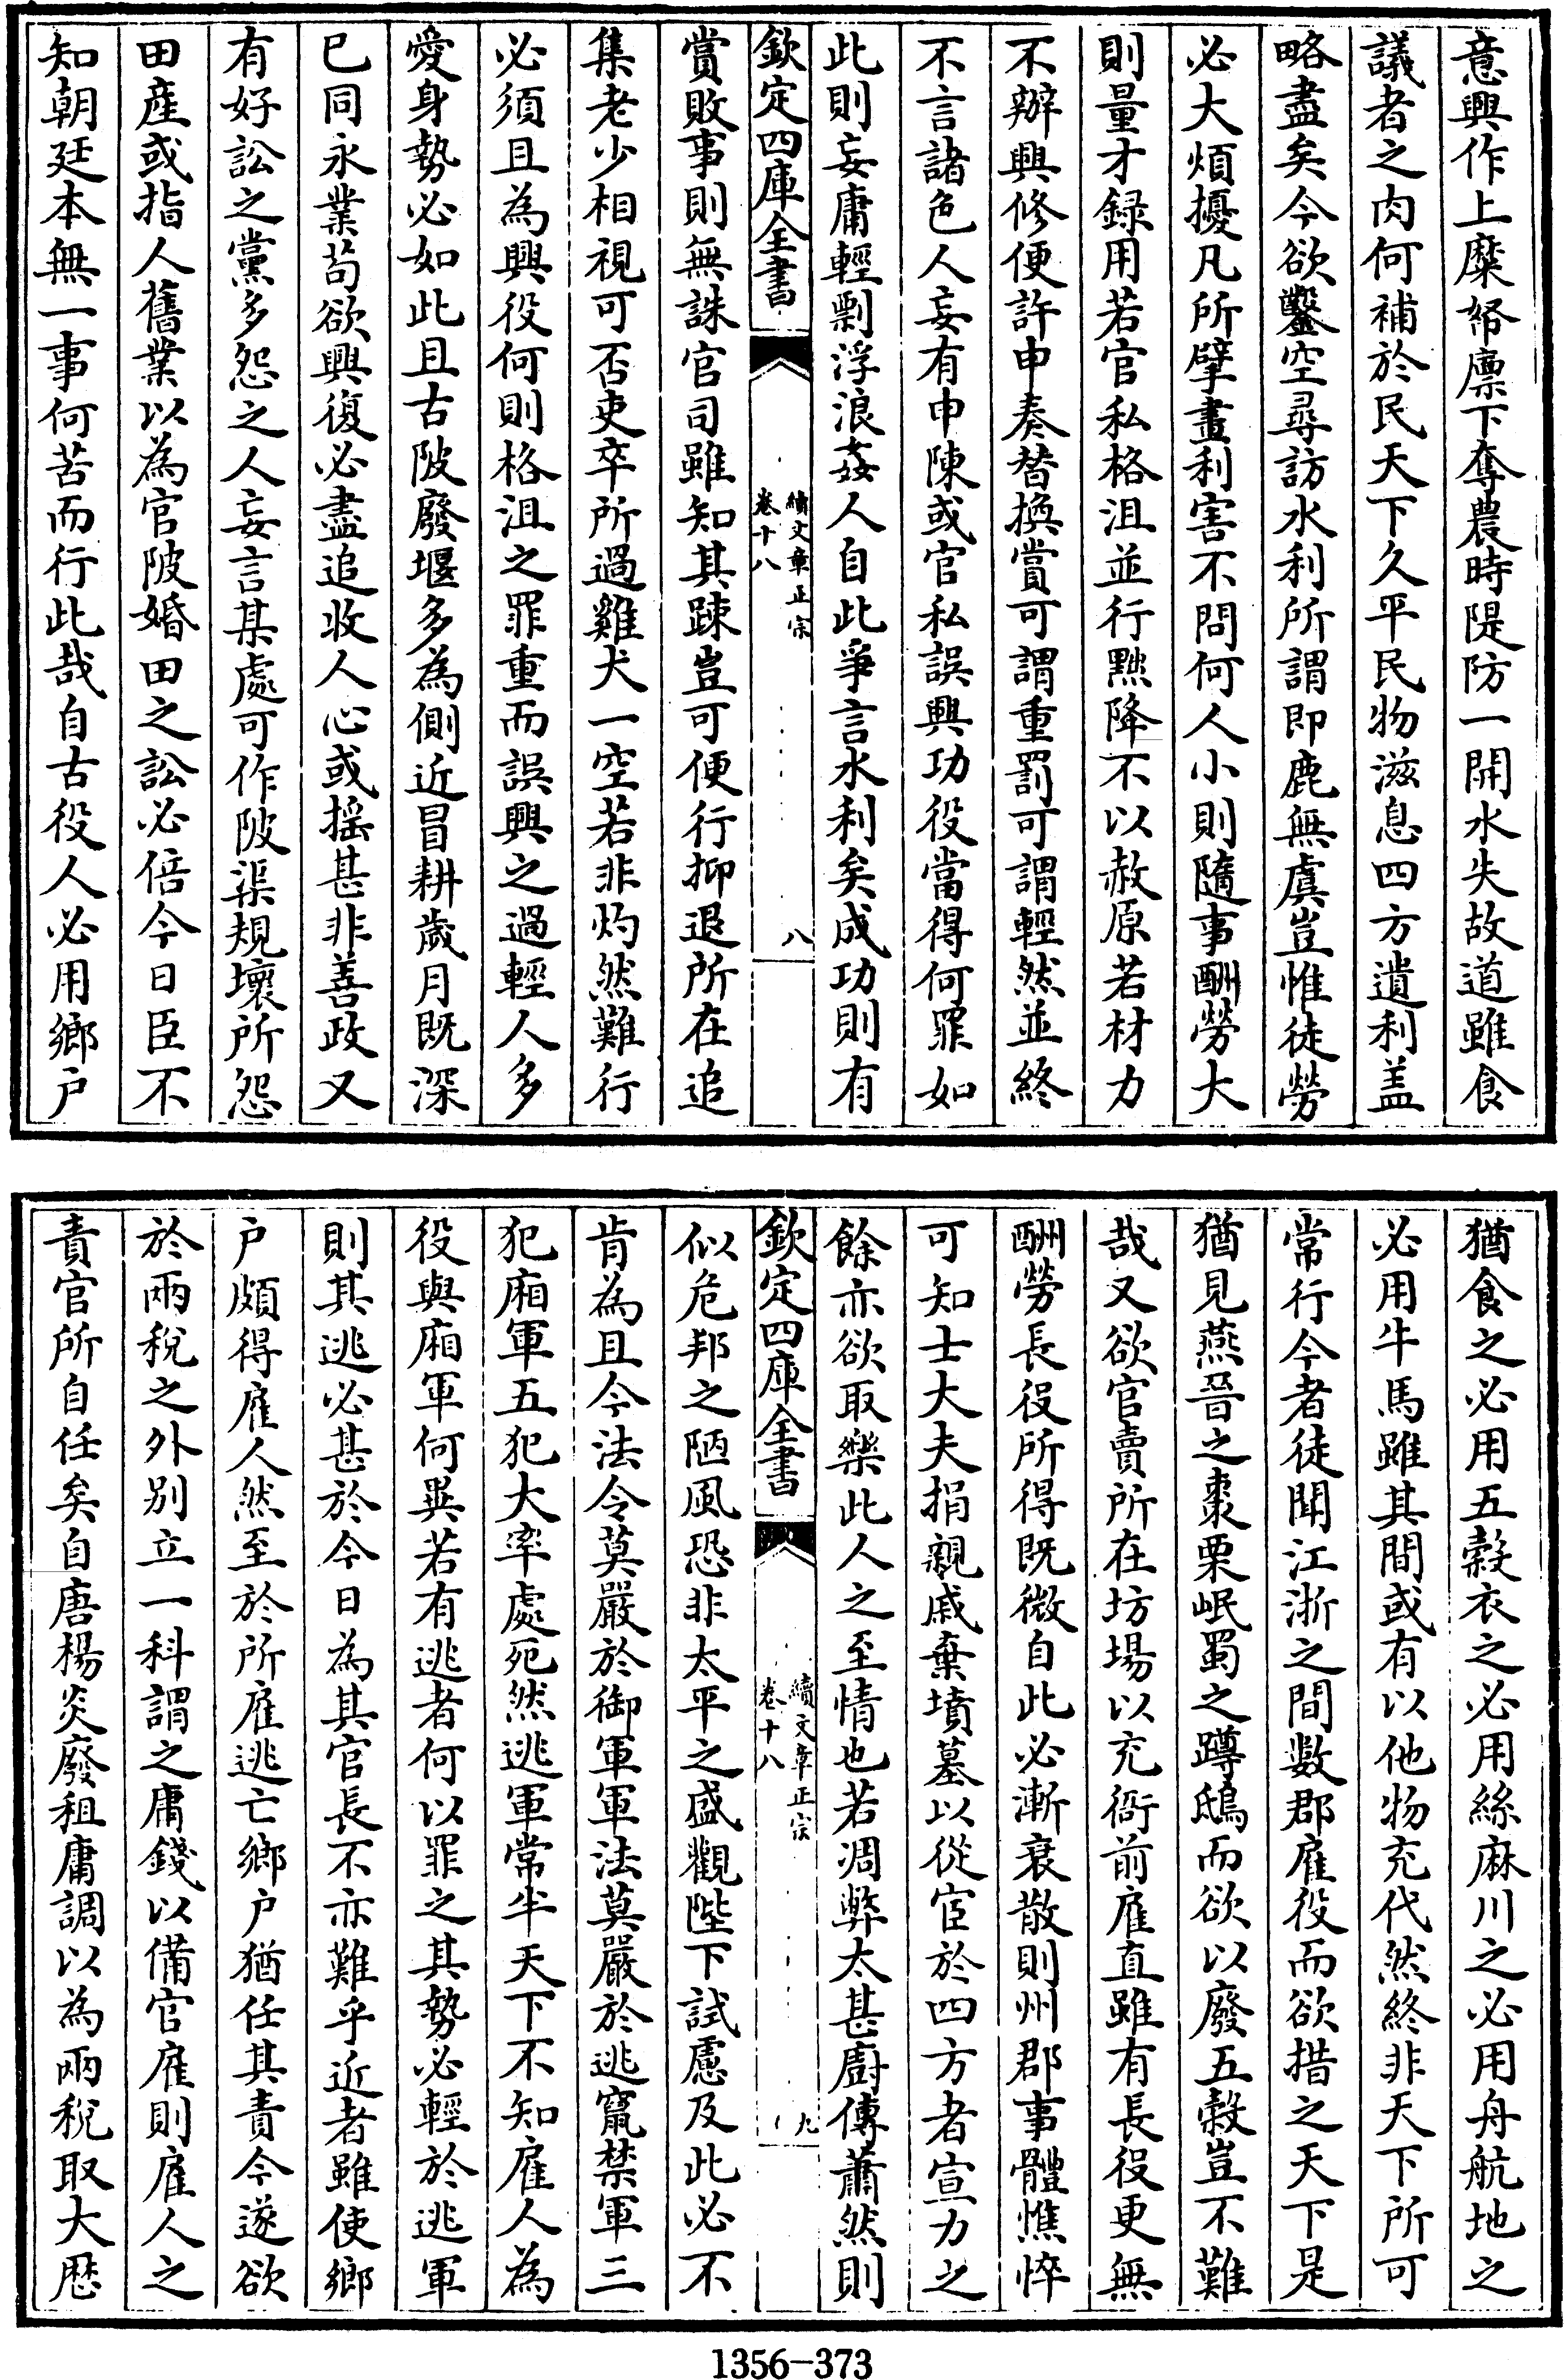 意興作上糜帑廪下奪農時隄防一開水失故道雖食
議者之肉何補於民天下久平民物滋息四方遺利盖
略盡矣今欲鑿空尋訪水利所謂即鹿無虞豈惟徒勞
必大煩擾凡所擘畫利害不問何人小則隨事酬勞大
則量才録用若官私格沮並行黜降不以赦原若材力
不辦興修便許申奏替換賞可謂重罰可謂輕然並終
不言諸色人妄有申陳或官私誤興功役當得何罪如
此則妄庸輕剽浮浪姦人自此爭言水利矣成功則有
欽定四庫全書
續文章正宗
卷十八
八
賞敗事則無誅官司雖知其踈豈可便行抑退所在追
集老少相視可否吏卒所過雞犬一空若非灼然難行
必須且為興役何則格沮之罪重而誤興之過輕人多
愛身勢必如此且古陂廢堰多為側近冒耕歲月既深
已同永業苟欲興復必盡追收人心或揺甚非善政又
有好訟之黨多怨之人妄言某處可作陂渠規壞所怨
田產或指人舊業以為官陂婚田之訟必倍今日臣不
知朝廷本無一事何苦而行此哉自古役人必用鄉户
猶食之必用五穀衣之必用絲麻川之必用舟航地之
必用牛馬雖其間或有以他物充代然終非天下所可
常行今者徒聞江浙之間數郡雇役而欲措之天下是
猶見燕晉之棗栗岷蜀之蹲鴟而欲以廢五穀豈不難
哉又欲官賣所在坊場以充衙前雇直雖有長役更無
酬勞長役所得既微自此必漸衰散則州郡事體憔悴
可知士大夫捐親戚棄墳墓以從宦於四方者宣力之
餘亦欲取樂此人之至情也若凋弊太甚廚傳蕭然則
欽定四庫全書
續文章正宗
卷十八
九
似危邦之陋風恐非太平之盛觀陛下試慮及此必不
肯為且今法令莫嚴於御軍軍法莫嚴於逃竄禁軍三
犯廂軍五犯大率處死然逃軍常半天下不知雇人為
役與廂軍何異若有逃者何以罪之其勢必輕於逃軍
則其逃必甚於今日為其官長不亦難乎近者雖使鄉
户頗得雇人然至於所雇逃亡鄉户猶任其責今遂欲
於兩稅之外别立一科謂之庸錢以備官雇則雇人之
責官所自任矣自唐楊炎廢租庸調以為兩稅取大厯
1356-373